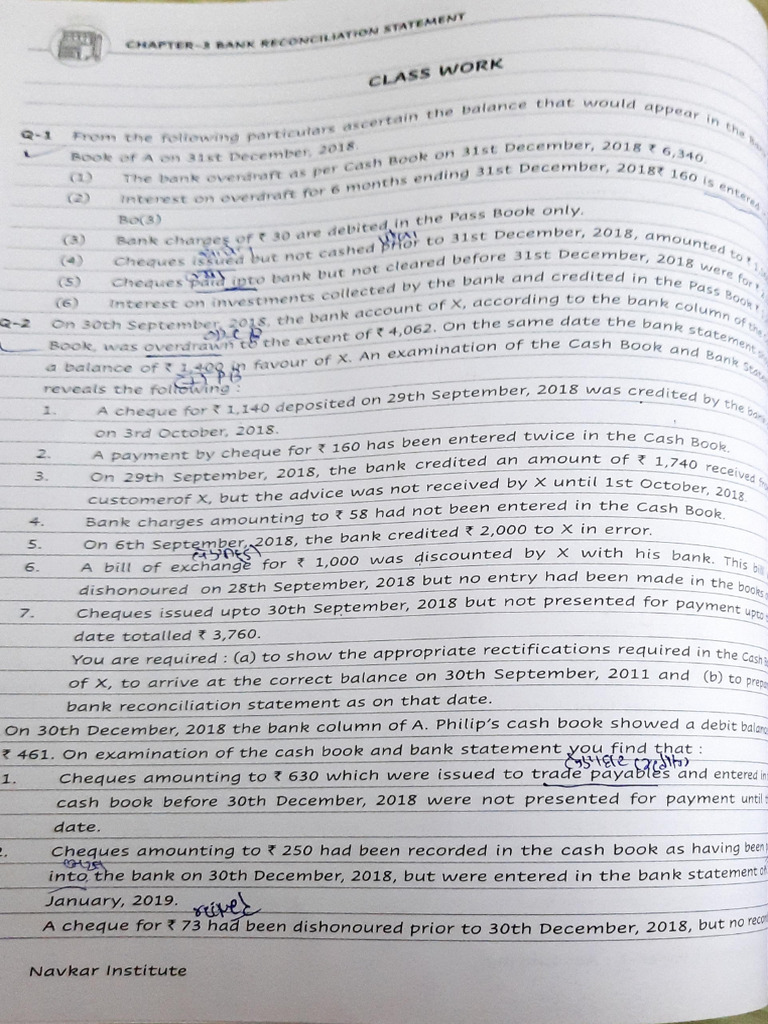 CHAPTER-3 BANK RECONCILIATION STATEMENT
CLASS WORK
Q-1 From the following particulars ascertain the balance that would appear in the
Book of A on 31st December, 2018.
(1) The bank overdraft as per Cash Book on 31st December, 2018 ₹ 6,340.
(2) Interest on overdraft for 6 months ending 31st December, 2018₹ 160 is entered
Bo(3)
(3) Bank charges of ₹ 30 are debited in the Pass Book only.
(4) Cheques issued but not cashed prior to 31st December, 2018, amounted to ₹
(5) Cheques paid into bank but not cleared before 31st December, 2018 were for ₹
(6) Interest on investments collected by the bank and credited in the Pass Book
Q-2 On 30th September, 2018, the bank account of X, according to the bank column of the
Book, was overdrawn to the extent of ₹ 4,062. On the same date the bank statement
a balance of ₹ 1,400 in favour of X. An examination of the Cash Book and Bank
reveals the following :
1. A cheque for ₹ 1,140 deposited on 29th September, 2018 was credited by the
on 3rd October, 2018.
2. A payment by cheque for ₹ 160 has been entered twice in the Cash Book.
3. On 29th September, 2018, the bank credited an amount of ₹ 1,740 received
customerof X, but the advice was not received by X until 1st October, 2018
4. Bank charges amounting to ₹ 58 had not been entered in the Cash Book.
5. On 6th September, 2018, the bank credited ₹ 2,000 to X in error.
6. A bill of exchange for ₹ 1,000 was discounted by X with his bank. This bill
dishonoured on 28th September, 2018 but no entry had been made in the books
7. Cheques issued upto 30th September, 2018 but not presented for payment upto
date totalled ₹ 3,760.
You are required : (a) to show the appropriate rectifications required in the Cash
of X, to arrive at the correct balance on 30th September, 2011 and (b) to
bank reconciliation statement as on that date.
On 30th December, 2018 the bank column of A. Philip's cash book showed a debit
₹ 461. On examination of the cash book and bank statement you find that :
1. Cheques amounting to ₹ 630 which were issued to trade payables and entered in
cash book before 30th December, 2018 were not presented for payment until
date.
Cheques amounting to ₹ 250 had been recorded in the cash book as having been
into the bank on 30th December, 2018, but were entered in the bank statement
January, 2019.
A cheque for ₹ 73 had been dishonoured prior to 30th December, 2018, but no
Navkar Institute